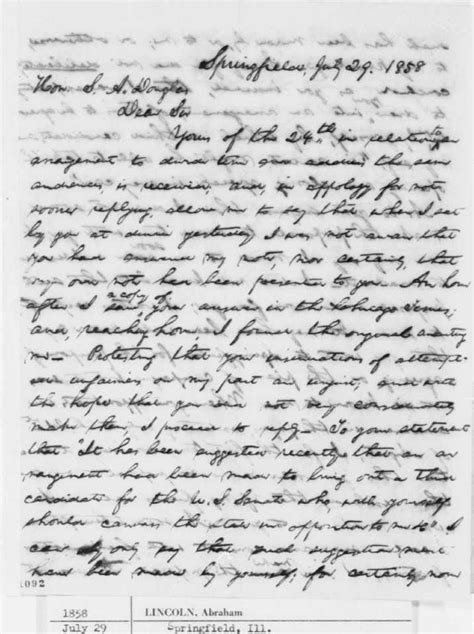 Springfield, July 29. 1858
Hon. S. A. Douglas
Dear Sir
Yours of the 24th in relation to an
arrangement to divide time and address the same
audiences, is received; and, in appology for not
sooner replying, allow me to say that when I sat
by you at dinner yesterday I was not aware that
you had answered my note, nor certainly, that
my own note had been presented to you. An hour
after I saw a copy of your answer in the Chicago Times;
and, reaching home, I found the original awaiting
me. Protesting that your insinuations of attempted
unfairness on my part are unjust; and with
the hope that you did not very considerately
make them, I proceed to reply. To your statement
that "It has been suggested recently that an ar-
rangement had been made to bring out a third
candidate for the U. S. Senate who, with yourself
should canvass the state in opposition to me &c" I
can only say that such suggestion must
have been made by yourself; for certainly none
1092
1858 LINCOLN, Abraham
July 29 Springfield, Ill.